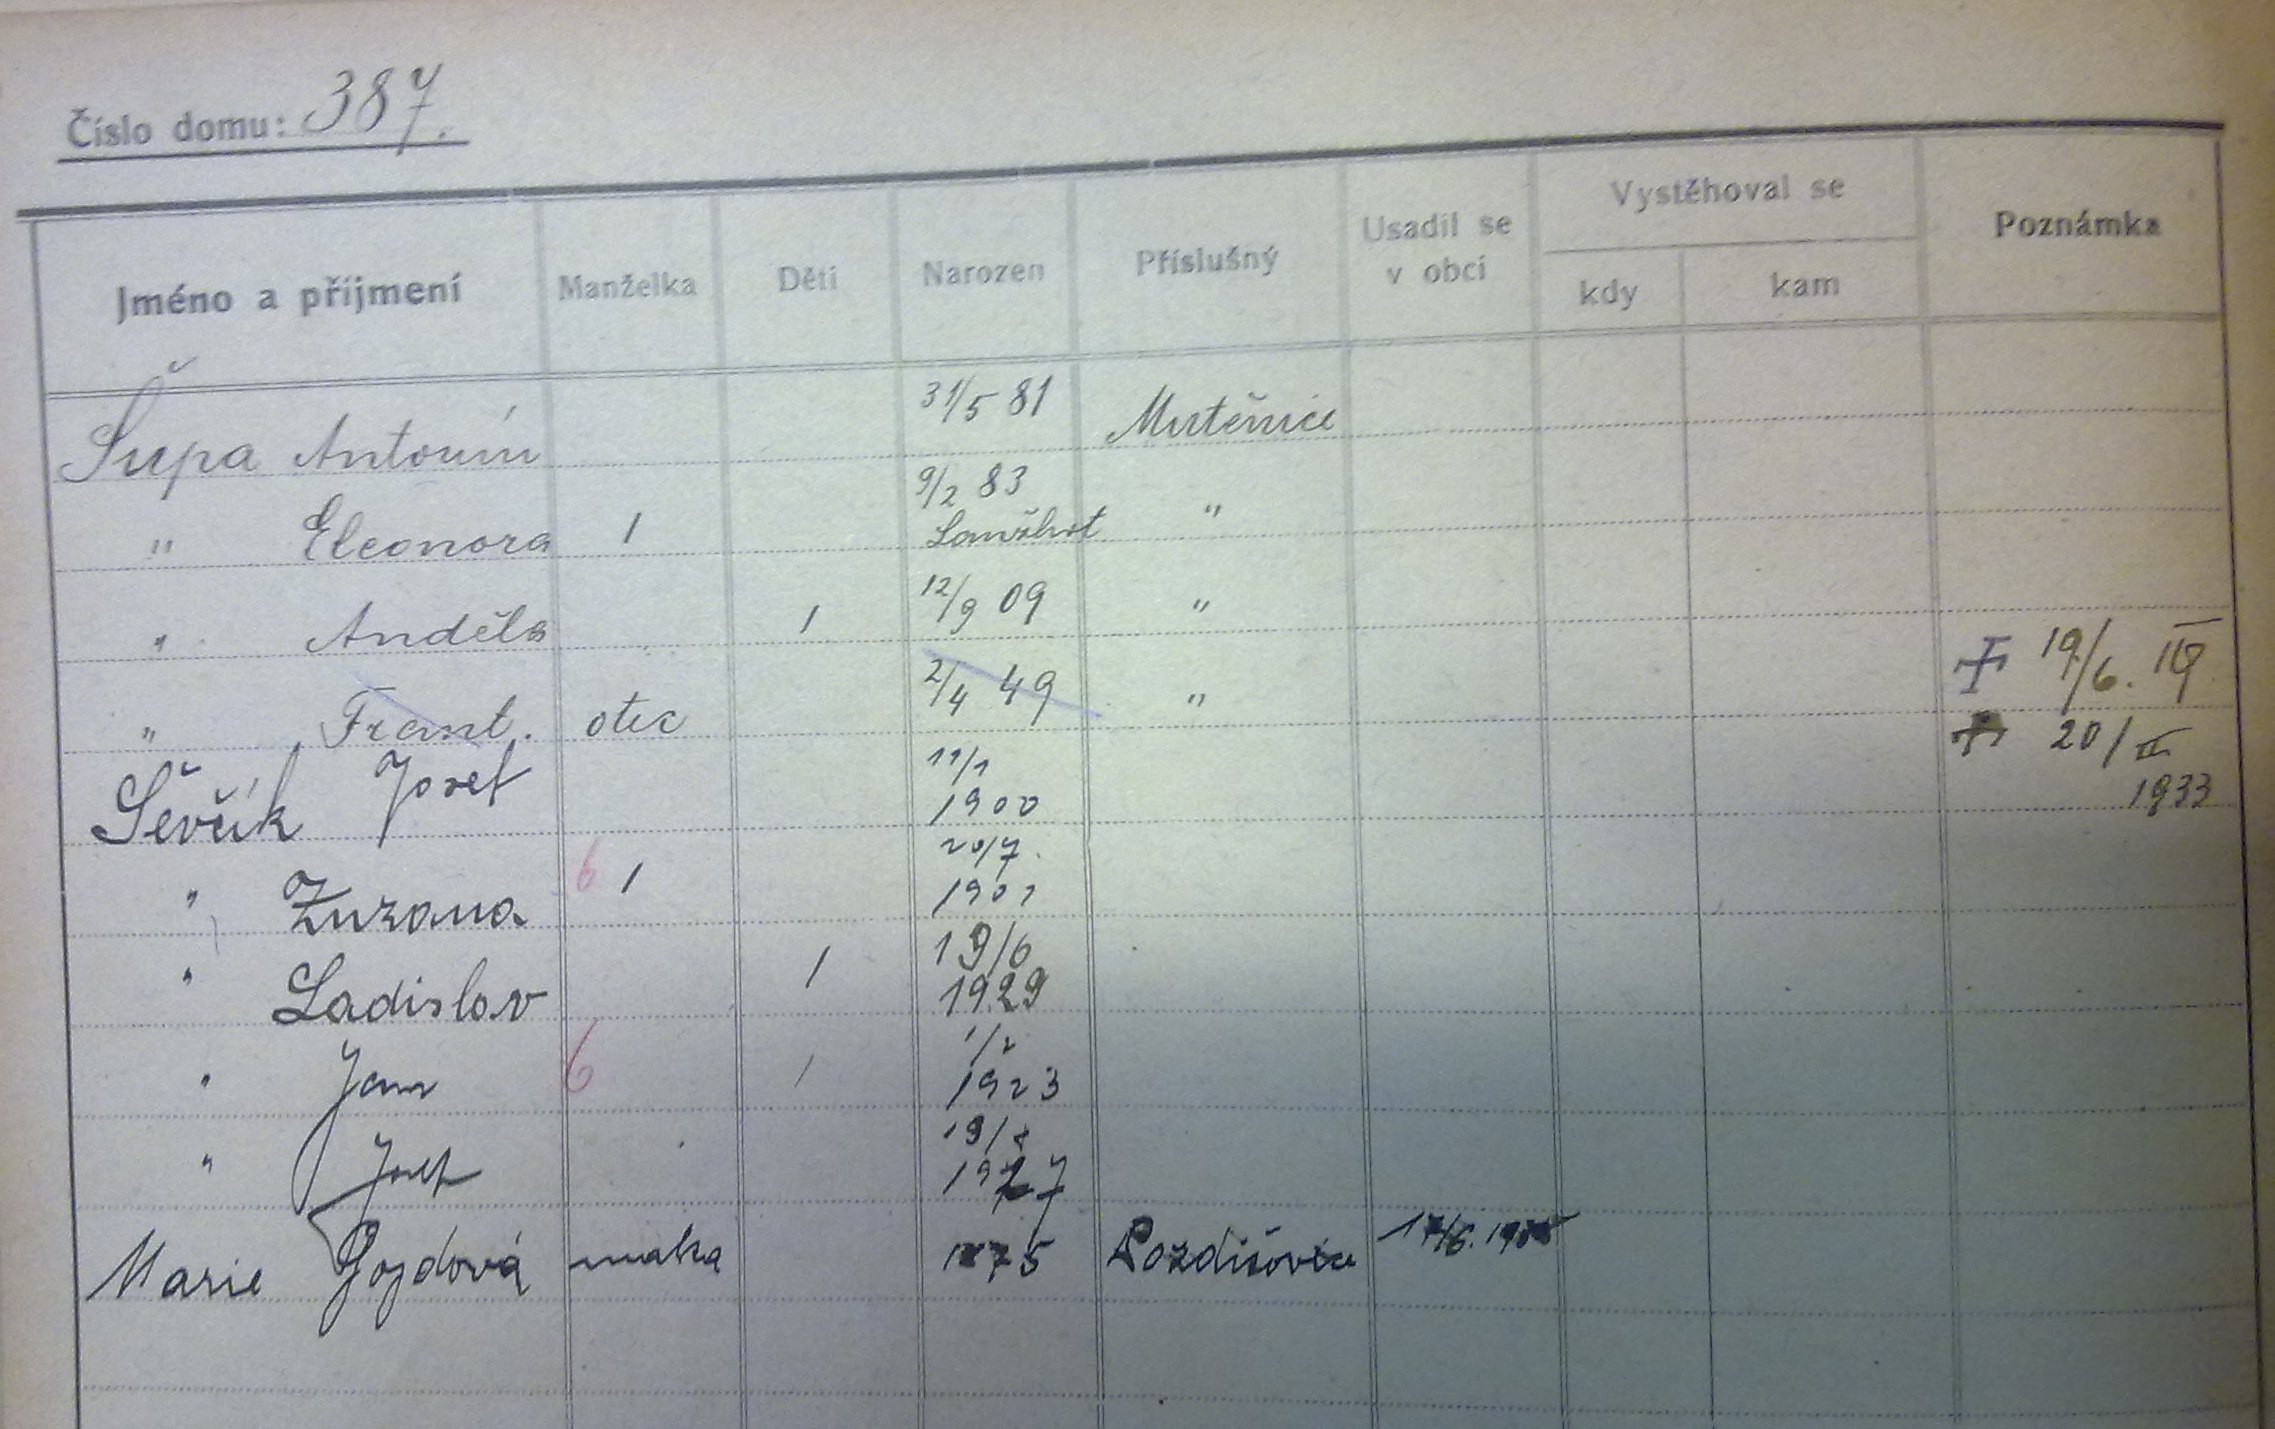 Číslo domu: 387.
Jméno a příjmení Manželka Děti Narozen Příslušný Usadil se v obci Vystěhoval se kdy kam Poznámka
Šupa Antonín 31/5 81 Mutěnice
" Eleonora 1 9/2 83 Lanžhot "
" Anděla 1 12/9 09 "
" Frant. otec 2/4 49 " 19/6.
Ševčík Josef 11/1 1900 20/III 1933
" Zuzana 6 1 20/7. 1901
" Ladislav 1 19/6 1929
" Jan 6 1 1/2 1923
" Josef 19/8 1927
Marie Gojdová matka 1875 Pozdišovce 17/6.